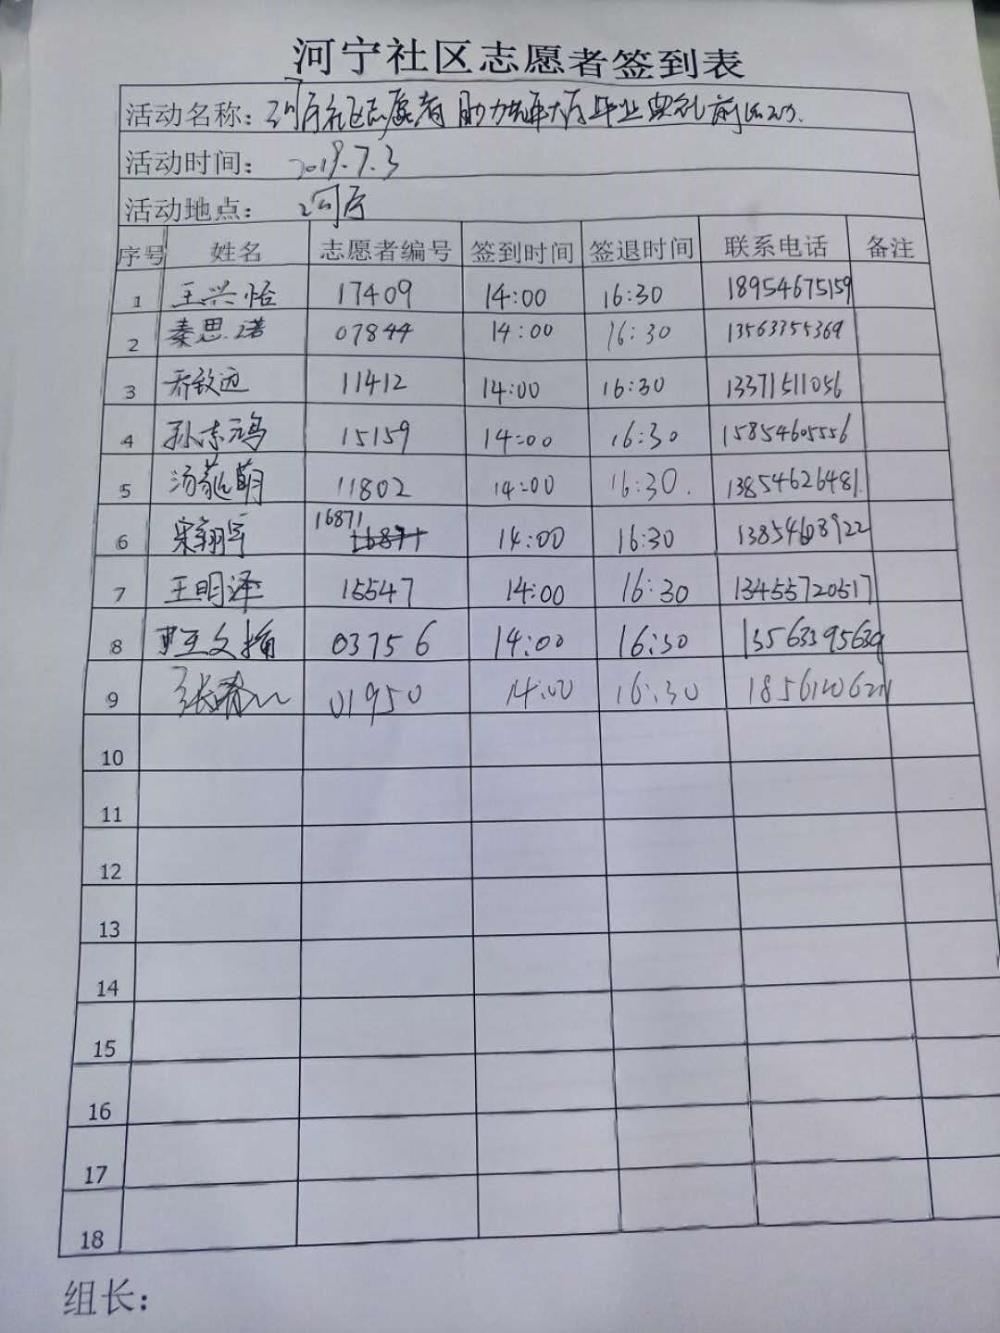 河宁社区志愿者签到表
活动名称：河宁社区志愿者助力 毕业典礼前
活动时间：2019.7.3
活动地点：河宁
序号 姓名 志愿者编号 签到时间 签退时间 联系电话 备注
1 王兴怡 17409 14:00 16:30 18954675159
2 秦思诺 07844 14:00 16:30 13563355369
3 乔敏迅 11412 14:00 16:30 13371511056
4 孙志鸿 15159 14:00 16:30 15854605556
5 汤 萌 11802 14:00 16:30. 13854626481.
6 宋翔宇 16871 16871 14:00 16:30 13854608922
7 王明泽 15547 14:00 16:30 13455720517
8 王文 03756 14:00 16:30 13563395639
9 张春 01950 14:00 16:30
10
11
12
13
14
15
16
17
18
组长：